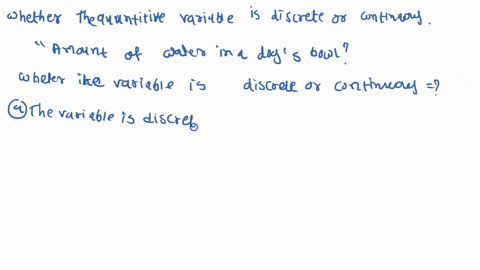 whether the quantitive variable is discrete or continuous.
"Amount of water in a dog's bowl?
wheter the variable is discrete or continuous =?
(a) The variable is discret